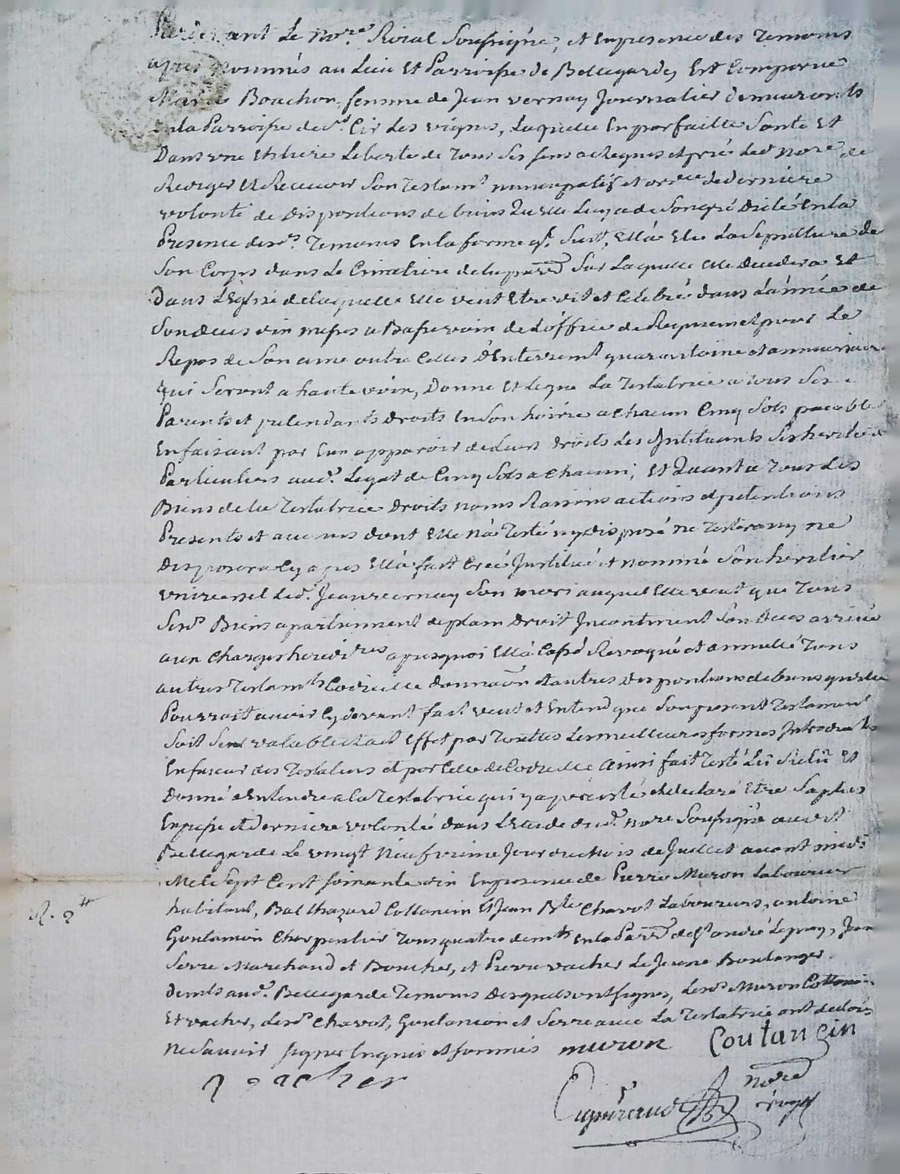 Pardevant Le Nore. Royal Soussigné, et En presence des Temoins
apres Nommés au Lieu Et Parroisse de Bellegarde, Est Comparue
Marie Bouchon, femme de Jean vernay Journalier demeurants
En la Parroisse de St. Cir Les vignes, Laquelle En parfaitte Santé Et
Dans une Entiere Liberté de Tous Ses Sens a Requis et prié Led. Nore. de
Rediger Et Recevoir Son Testamt. nuncupatif et ordce. de derniere
volonté de dispositions de biens Quelle La ya de Son gré Dicté En la
Presence desd. Temoins En la forme q. Suit, Ella Elu La Sepulture de
Son Corps dans Le Cimetiere de la parsse. Sur Laquelle Elle decedera Et
Dans L'Eglise de laquelle Elle veut Etre dit et Celebré dans L'année de
Son deces vin messes a Basse voix de L'office de Requiem et pour Le
Repos de Son ame outre Celles d'Enterremt. quarantaine et annuersaire
qui Seront a haute voix, Donne Et Legue La Testatrice a Tous Ses
Parents et pretendants droits En Son hoirie a Chacun Cinq Sols payables
En faisant par Eux apparoir de Leurs droits Les Instituants Ses heritiers
Particuliers aud. Legat de Cinq Sols a Chacun; Et Quant a Tous Les
Biens de la Testatrice Droits noms Raisons actions et pretentions
Presents et avenirs dont Elle Na Testé ny disposé ne Testera ny ne
Disposera Cy apres Ella fait Creé Institué et Nommé Son heritier
universel Led. Jean vernay Son mari auquel Elle veut que Tous
Sesd. Biens apartiennent de plain droit Incontinent Son deces arrivé
aux Charges heredires. apres quoi Ella Cassé Revoqué et annullé Tous
autres Testamts. Codicille donnaõn et autres dispositions de biens quelle
Pourrait avoir Cy devant fait veut et Entend que Son present Testament
Soit Seul valable et ait Effet par Toutes Les meilleures formes Introduites
En faveur des Testateurs et par Celle de Codicille Ainsi fait Testé Lu Relu Et
Donné a Entendre a La Testatrice qui y a persisté et declaré Etre Sa plus
Expresse et derniere volonté dans L'Etude dud. Nore. Soussigné audit
Bellegarde Le vingt Neufvieme Jour du Mois de Juillet avant midi
Mil Sept Cent Soixante vin En presence de Pierre Muron Laboureur
habitant, Balthazard Cottancin Et Jean Bte. Chavot Laboureurs, antoine
Goulamon Charpentier Tous quatre demts. En la Parsse. de St. andré Lepuy, Jean
Serre Marchand et Boucher, et Pierre vacher Le Jeune Boulanger
demts. aud. Bellegarde Temoins desquels ont Signé, Lesd. Muron Cottancin
Et vacher, Lesd. Chavot, Goulamon et Serre avec La Testatrice ont declaré
Ne Savoir Signer Enquis et Sommés muron Coutansin
P vacher
Nore
Royal